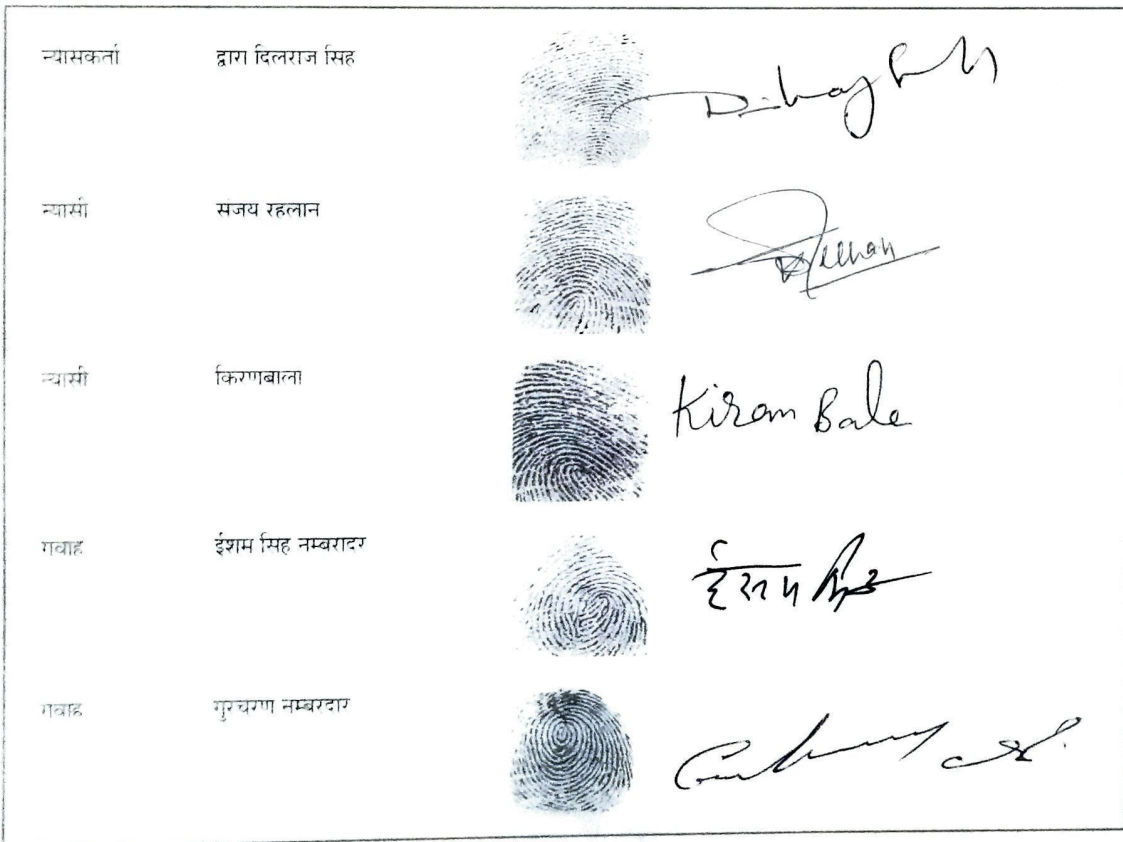 न्यासकर्ता द्वारा दिलराज सिंह Dilraj Singh
न्यासी संजय रहलान
न्यासी किरणबाला Kiran Bala
गवाह ईशम सिंह नम्बरादर ईशम सिंह
गवाह गुरचरण नम्बरदार